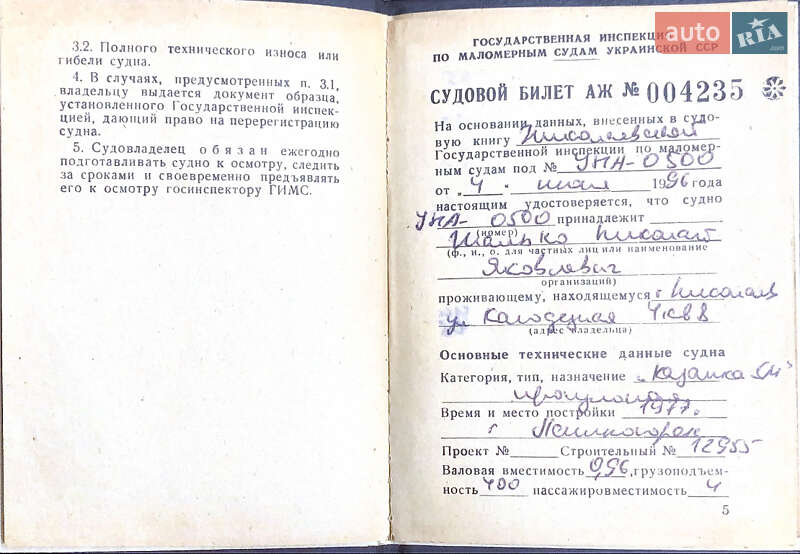 3.2. Полного технического износа или
гибели судна.
4. В случаях, предусмотренных п. 3.1,
владельцу выдается документ образца,
установленного Государственной инспек-
цией, дающий право на перерегистрацию
судна.
5. Судовладелец обязан ежегодно
подготавливать судно к осмотру, следить
за сроками и своевременно предъявлять
его к осмотру госинспектору ГИМС.
auto RIA
.com
ГОСУДАРСТВЕННАЯ ИНСПЕКЦИЯ
ПО МАЛОМЕРНЫМ СУДАМ УКРАИНСКОЙ ССР
СУДОВОЙ БИЛЕТ АЖ № 004235
На основании данных, внесенных в судо-
вую книгу Николаевской
Государственной инспекции по маломер-
ным судам под № УНА-0500
от „4" июля 1996 года
настоящим удостоверяется, что судно
УНА- 0500 принадлежит
(номер)
Николай
(ф., и., о. для частных лиц или наименование
Яковлевич
организаций)
проживающему, находящемуся г Николаев
ул Колодезная 4 кв 8
(адрес владельца)
Основные технические данные судна
Категория, тип, назначение „Казанка 5М"
прогулочная
Время и место постройки 1977г.
г
Проект № Строительный № 12955
Валовая вместимость 0,96, грузоподъем-
ность 400 пассажировместимость 4
5